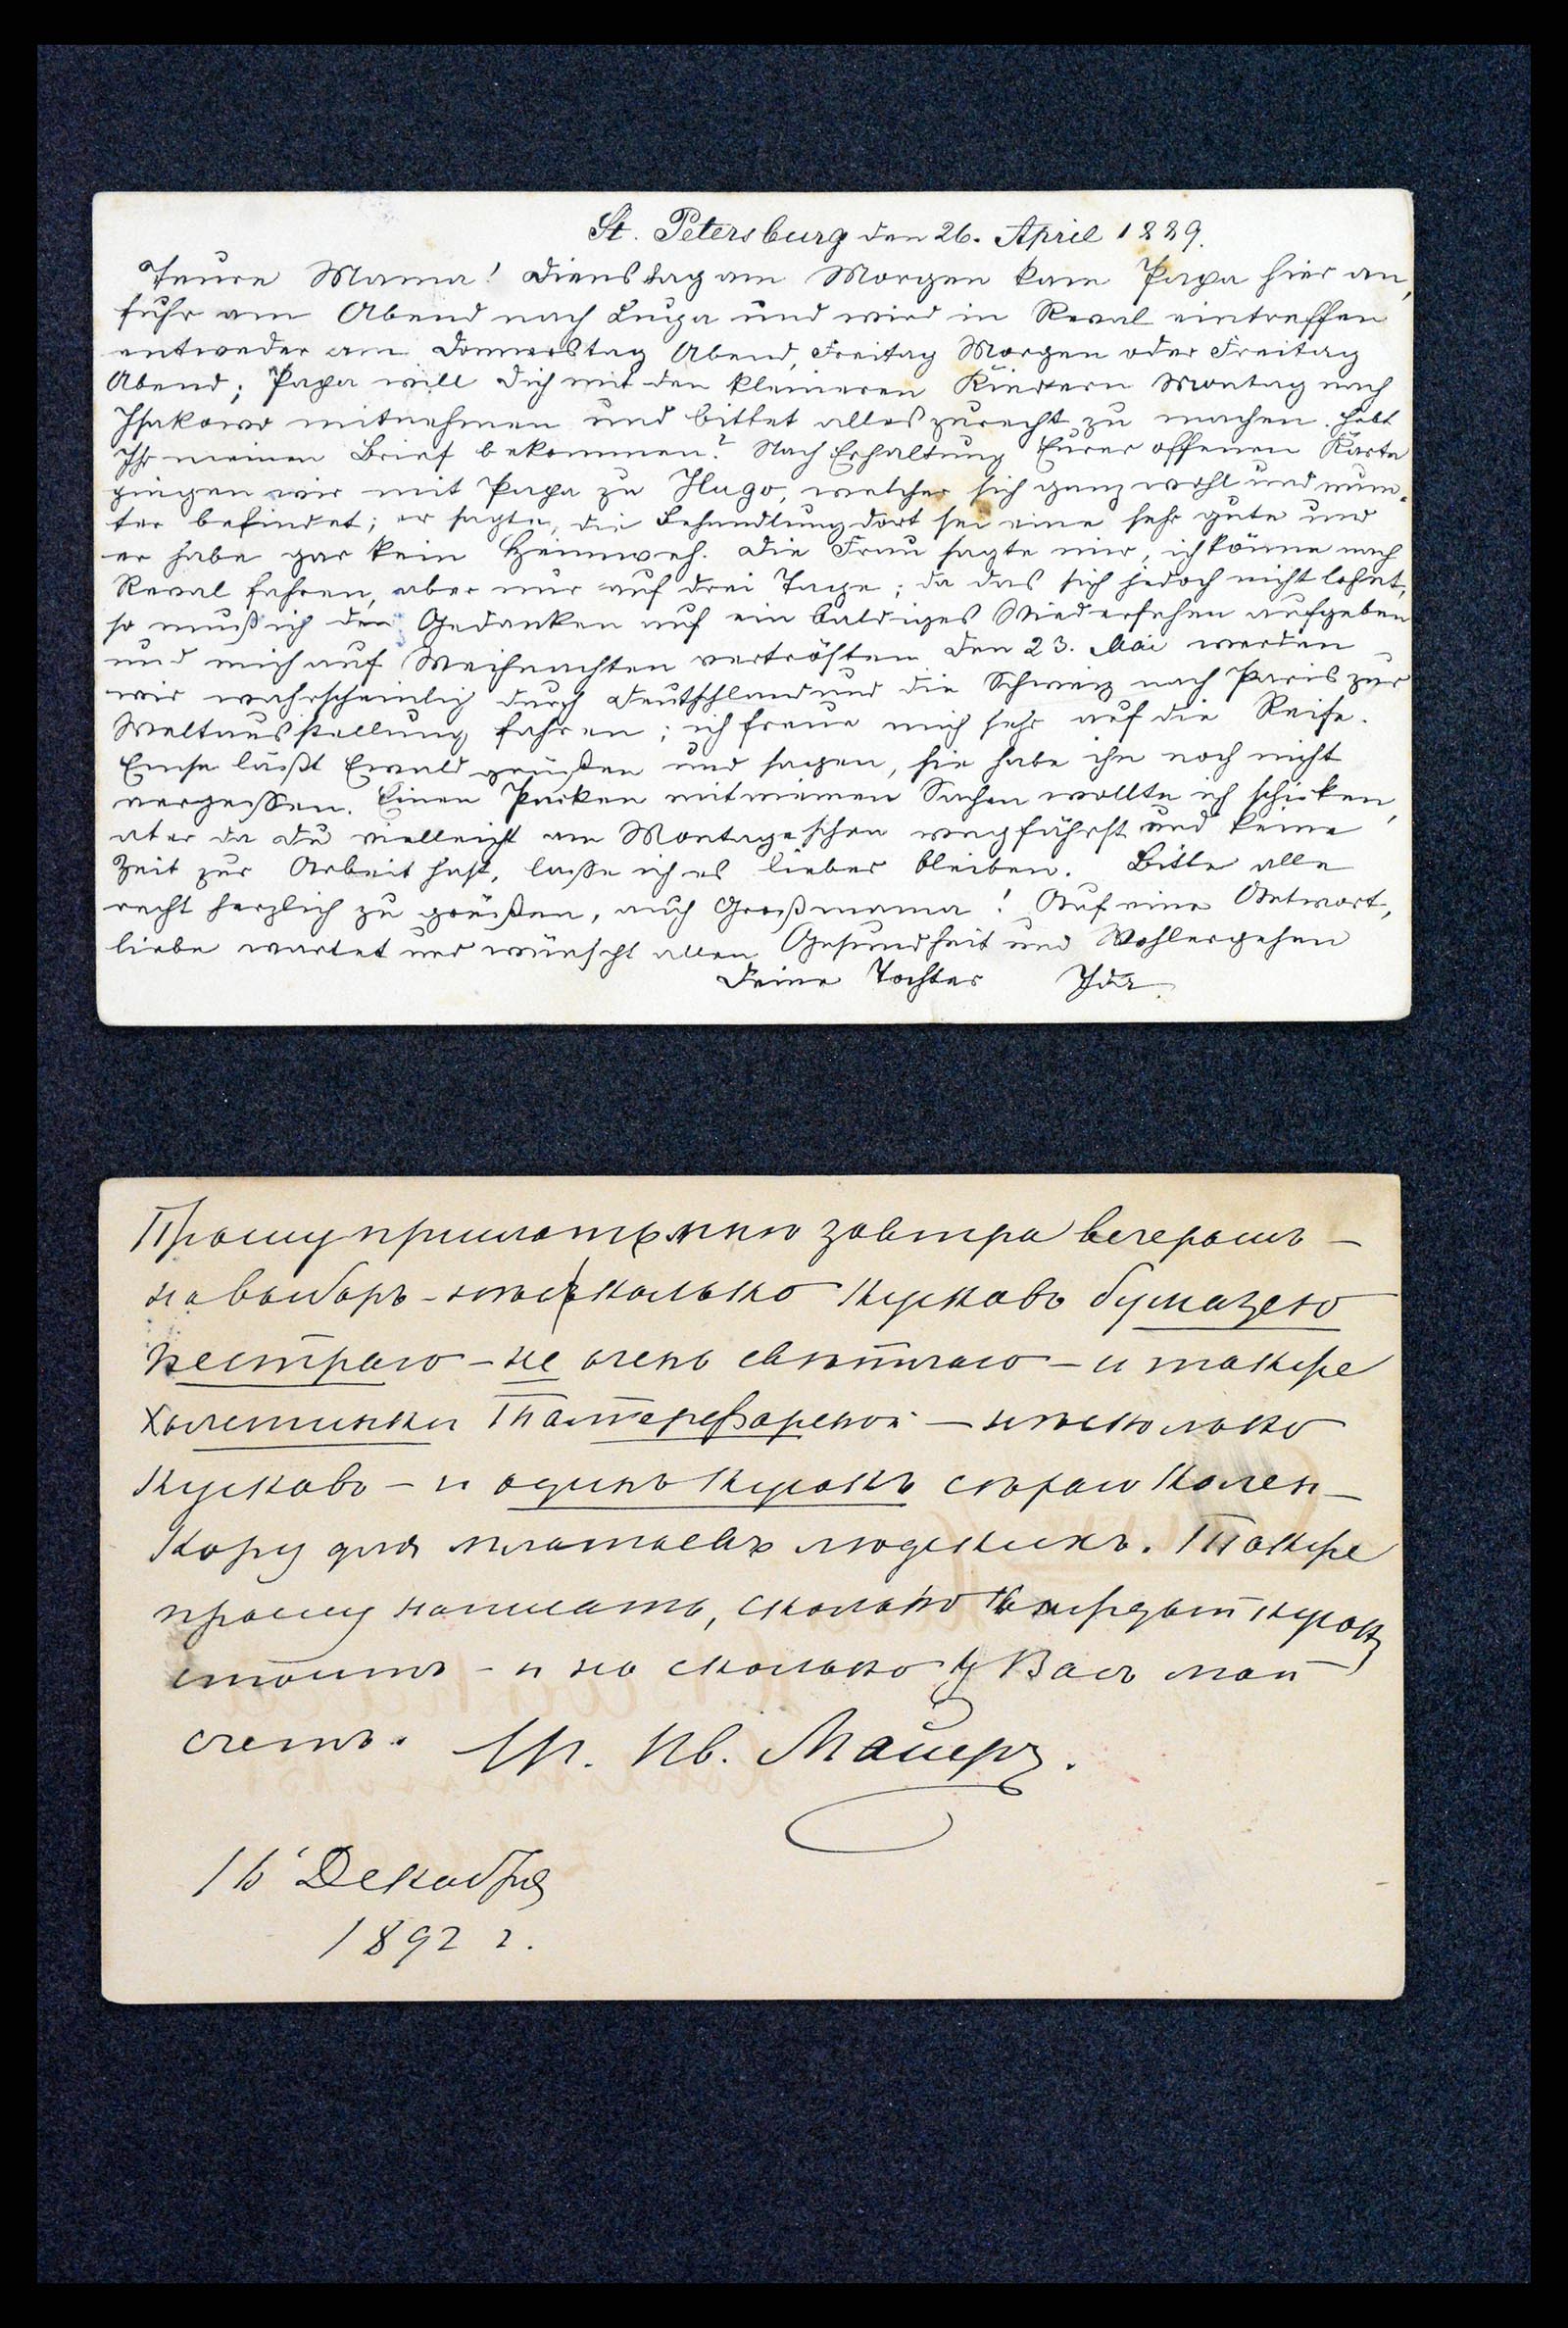 St. Petersburg den 26. April 1889.
Teure Mama! Dienstag am Morgen kam Papa hier an,
fuhr am Abend nach Luga und wird in Reval eintreffen
entweder am Donnerstag Abend, Freitag Morgen oder Freitag
Abend; Papa will Dich mit den kleineren Kindern Montag nach
Isakowo mitnehmen und bittet alles zurecht zu machen. Habt
Ihr meinen Brief bekommen? Nach Erhaltung Eurer offenen Karte
gingen wir mit Papa zu Hugo, welcher sich ganz wohl und mun-
ter befindet; er sagte, die Behandlung dort sei eine sehr gute und
er habe gar kein Heimweh. Die Frau sagte mir, ich könne nach
Reval fahren, aber nur auf drei Tage; da das sich jedoch nicht lohnt,
so muß ich den Gedanken auf ein baldiges Wiedersehen aufgeben
und mich auf Weihnachten vertrösten. Den 23. Mai werden
wir wahrscheinlich durch Deutschland und die Schweiz nach Paris zur
Weltausstellung fahren; ich freue mich sehr auf die Reise.
läßt Ewald grüßen und sagen, sie habe ihn noch nicht
vergessen. Einen Packen mit meinen Sachen wollte ich schicken,
aber da Du vielleicht am Montage schon wegfährst und keine
Zeit zur Arbeit hast, lasse ich es lieber bleiben. Bitte alle
recht herzlich zu grüßen, auch Großmama! Auf eine Antwort,
liebe wartet und wünscht allen Gesundheit und Wohlergehen
Deine Tochter Ida.
Прошу прислать мнѣ завтра вечеромъ –
на выборъ – нѣсколько кусковъ бумазею
пестраго – не очень свѣтлаго – и также
холстинки – нѣсколько
кусковъ – и одинъ кусокъ сѣраго колен-
кору для платьевъ людскихъ. Также
прошу написать, сколько каждый кусокъ
стоитъ – и на сколько у Васъ мой
счетъ. Гр. Майеръ.
16 Декабря
1892 г.